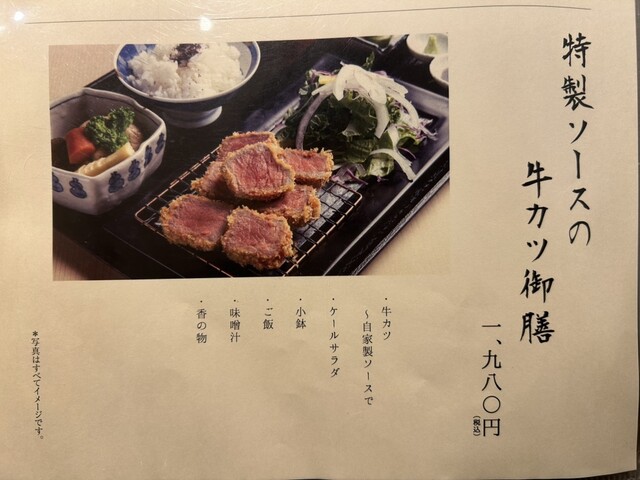 特製ソースの
牛カツ御膳
一、九八〇円
(税込)
・牛カツ
～自家製ソースで
・ケールサラダ
・小鉢
・ご飯
・味噌汁
・香の物
*写真はすべてイメージです。